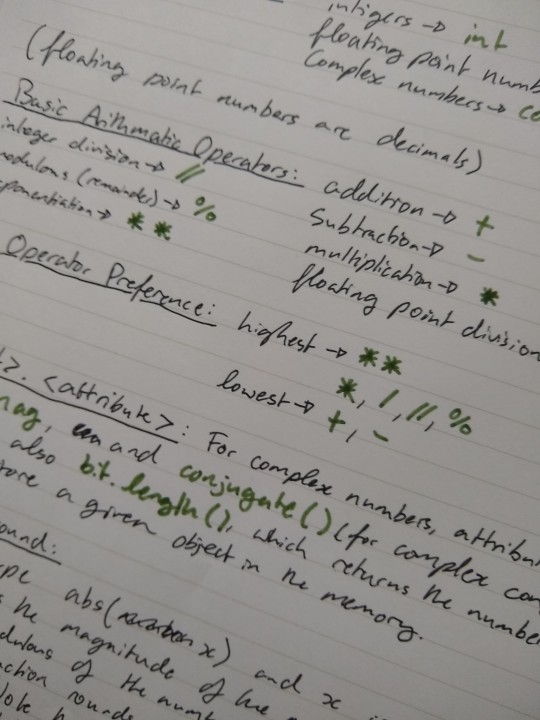 intigers → int
floating point numb
Complex numbers → co
(floating point numbers are decimals)
Basic Arithmatic Operators: addition → +
integer division → // Subtraction → -
modulous (remainder) → % multiplication → *
exponentiation → ** floating point division
Operator Preference: highest → **
*, /, //, %
lowest → +, -
>. <attribute>: For complex numbers, attribu
mag, and conjugate() (for complex con
also bit.length(), which returns the number
tore a given object in the memory.
ound:
ype abs(x) and x
s the magnitude of the
dulous of the numb
ction rounds